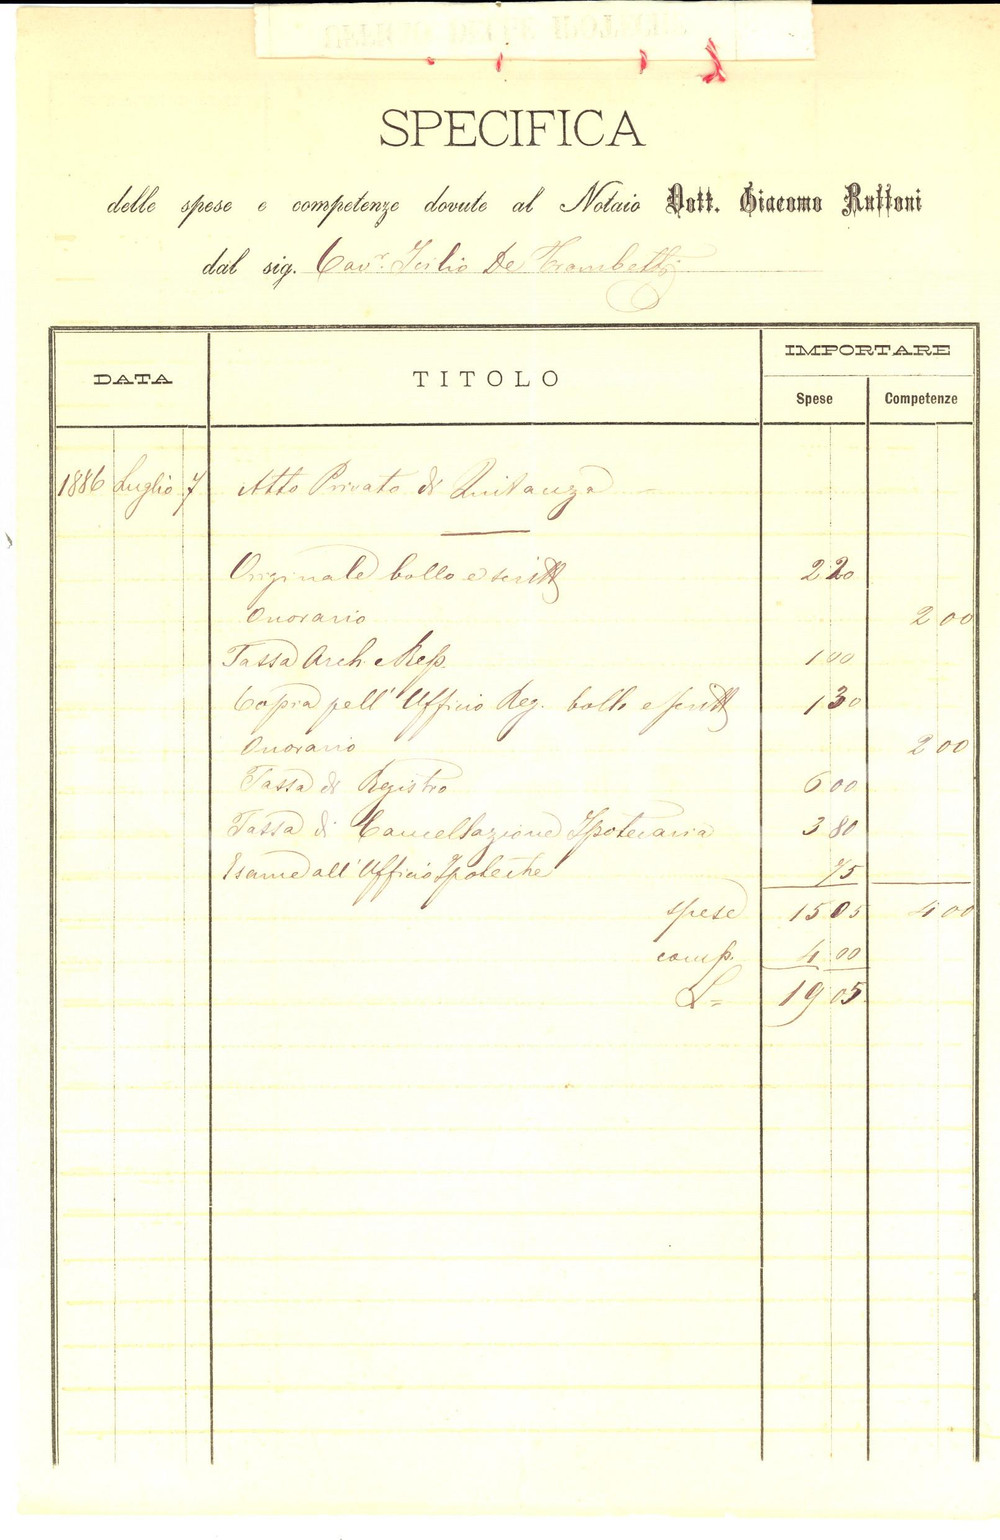 SPECIFICA
delle spese e competenze dovute al Notaio Dott. Giacomo Ruffoni
dal sig. Cavr. Icilio De Trambetti
DATA TITOLO IMPORTARE
Spese Competenze
1886 Luglio 7 Atto Privato di Quitanza
Originale bollo e scritt 2 20
Onorario 2 00
Tassa Arch. e Rep. 1 00
Copia pell' Ufficio Reg. bollo e scritt 1 30
Onorario 2 00
Tassa di Registro 6 00
Tassa di Cancellazione Ipotecaria 3 80
Esame all' Ufficio Ipoteche 75
spese 15 05 4 00
comp. 4 00
L= 19 05